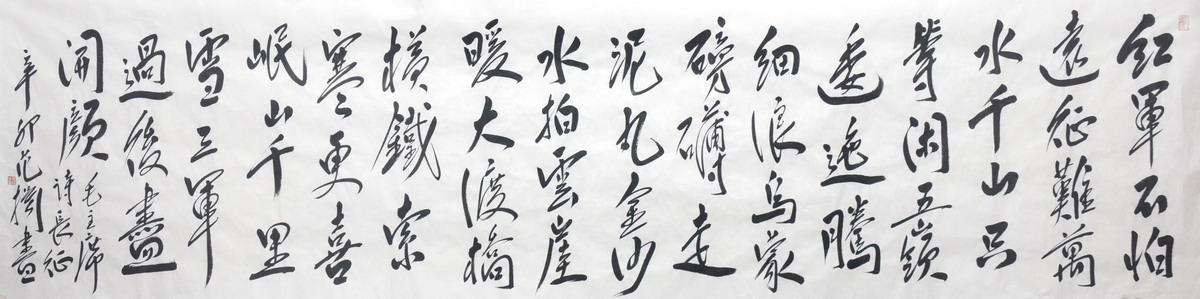 紅軍不怕
遠征難萬
水千山只
等閑五嶺
逶迤騰
細浪烏蒙
磅礴走
泥丸金沙
水拍雲崖
暖大渡橋
橫鐵索
寒更喜
岷山千里
雪三軍
過後盡
開顏
毛主席
詩長征
辛卯范書